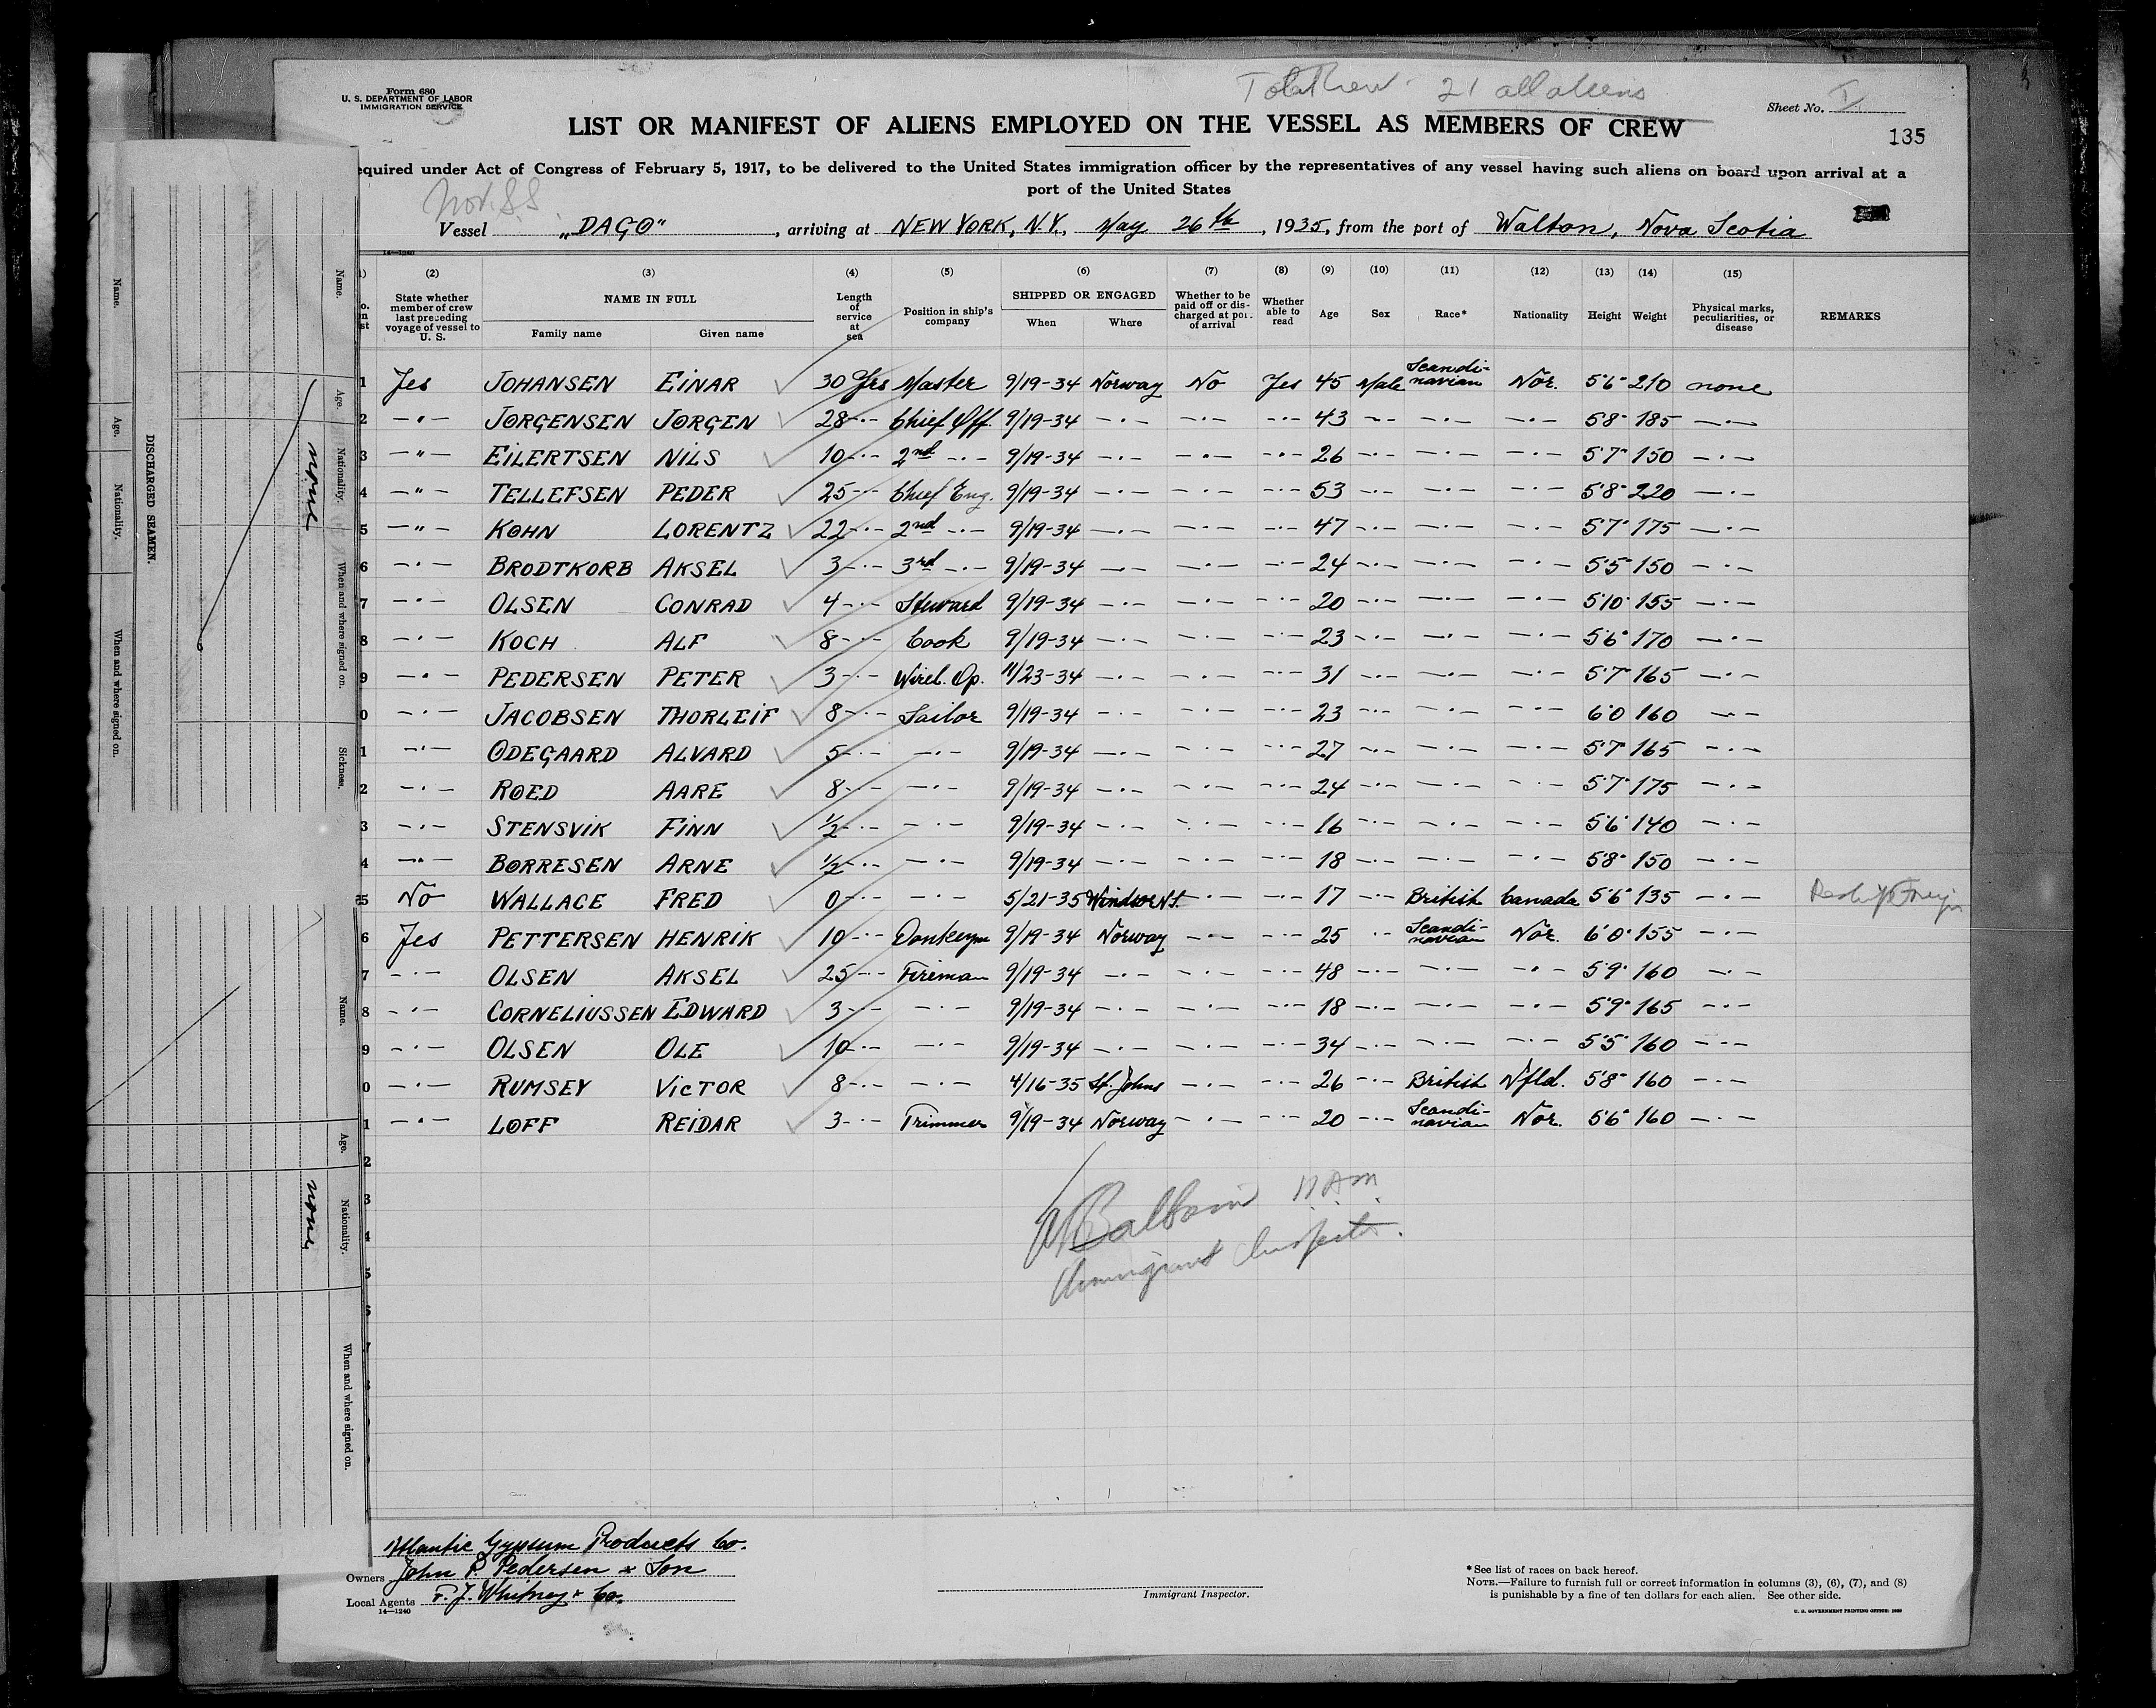 Form 680
U. S. DEPARTMENT OF LABOR
IMMIGRATION SERVICE
Total Crew - 21 all aliens
Sheet No. I
LIST OR MANIFEST OF ALIENS EMPLOYED ON THE VESSEL AS MEMBERS OF CREW
135
equired under Act of Congress of February 5, 1917, to be delivered to the United States immigration officer by the representatives of any vessel having such aliens on board upon arrival at a
port of the United States
Nor. S.S.
Vessel „DAGO“, arriving at NEW YORK, N.Y., May 26th, 1935, from the port of Walton, Nova Scotia
14—1240
(2) (3) (4) (5) (6) (7) (8) (9) (10) (11) (12) (13) (14) (15)
State whether member of crew last preceding voyage of vessel to U. S.
NAME IN FULL
Family name Given name
Length of service at sea
Position in ship's company
SHIPPED OR ENGAGED
When Where
Whether to be paid off or discharged at port of arrival
Whether able to read
Age
Sex
Race*
Nationality
Height
Weight
Physical marks, peculiarities, or disease
REMARKS
1 Yes JOHANSEN EINAR 30 Yrs Master 9/19-34 Norway No Yes 45 Male Scandi-navian Nor. 5'6" 210 none
2 -"- JØRGENSEN JØRGEN 28 -"- Chief Off. 9/19-34 -"- -"- -"- 43 -"- -"- -"- 5'8" 185 -"-
3 -"- EILERTSEN NILS 10 -"- 2nd -"- 9/19-34 -"- -"- -"- 26 -"- -"- -"- 5'7" 150 -"-
4 -"- TELLEFSEN PEDER 25 -"- Chief Eng. 9/19-34 -"- -"- -"- 53 -"- -"- -"- 5'8" 220 -"-
5 -"- KØHN LORENTZ 22 -"- 2nd -"- 9/19-34 -"- -"- -"- 47 -"- -"- -"- 5'7" 175 -"-
6 -"- BRODTKORB AKSEL 3 -"- 3rd -"- 9/19-34 -"- -"- -"- 24 -"- -"- -"- 5'5" 150 -"-
7 -"- OLSEN CONRAD 4 -"- Steward 9/19-34 -"- -"- -"- 20 -"- -"- -"- 5'10" 155 -"-
8 -"- KOCH ALF 8 -"- Cook 9/19-34 -"- -"- -"- 23 -"- -"- -"- 5'6" 170 -"-
9 -"- PEDERSEN PETER 3 -"- Wirel. Op. 11/23-34 -"- -"- -"- 31 -"- -"- -"- 5'7" 165 -"-
0 -"- JACOBSEN THORLEIF 8 -"- Sailor 9/19-34 -"- -"- -"- 23 -"- -"- -"- 6'0 160 -"-
1 -"- ØDEGAARD ALVARD 5 -"- -"- 9/19-34 -"- -"- -"- 27 -"- -"- -"- 5'7" 165 -"-
2 -"- RØED AARE 8 -"- -"- 9/19-34 -"- -"- -"- 24 -"- -"- -"- 5'7" 175 -"-
3 -"- STENSVIK FINN 1/2 -"- -"- 9/19-34 -"- -"- -"- 16 -"- -"- -"- 5'6" 140 -"-
4 -"- BØRRESEN ARNE 1/2 -"- -"- 9/19-34 -"- -"- -"- 18 -"- -"- -"- 5'8" 150 -"-
5 No WALLACE FRED 0 -"- -"- 5/21-35 Windsor N.S. -"- -"- 17 -"- British Canada 5'6" 135 -"-
6 Yes PETTERSEN HENRIK 10 -"- Donkeym 9/19-34 Norway -"- -"- 25 -"- Scandi-navian Nor. 6'0" 155 -"-
7 -"- OLSEN AKSEL 25 -"- Fireman 9/19-34 -"- -"- -"- 48 -"- -"- -"- 5'9" 160 -"-
8 -"- CORNELIUSSEN EDWARD 3 -"- -"- 9/19-34 -"- -"- -"- 18 -"- -"- -"- 5'9" 165 -"-
9 -"- OLSEN OLE 10 -"- -"- 9/19-34 -"- -"- -"- 34 -"- -"- -"- 5'5" 160 -"-
0 -"- RUMSEY VICTOR 8 -"- -"- 4/16-35 St. Johns -"- -"- 26 -"- British Nfld. 5'8" 160 -"-
1 -"- LØFF REIDAR 3 -"- Trimmer 9/19-34 Norway -"- -"- 20 -"- Scandi-navian Nor. 5'6" 160 -"-
2
3
4
5
6
7
11 AM
Immigrant Inspector.
Atlantic Gypsum Products Co.
Owners John P. Pedersen & Son
Local Agents F. J. Whitney & Co.
14—1240
Immigrant Inspector.
*See list of races on back hereof.
NOTE.—Failure to furnish full or correct information in columns (3), (6), (7), and (8)
is punishable by a fine of ten dollars for each alien. See other side.
U. S. GOVERNMENT PRINTING OFFICE
DISCHARGED SEAMEN.
Name.
Age.
Nationality.
When and where signed on.
Name.
Age.
Nationality.
When and where signed on.
Sickness.
none
Name.
Age.
Nationality.
When and where signed on.
none